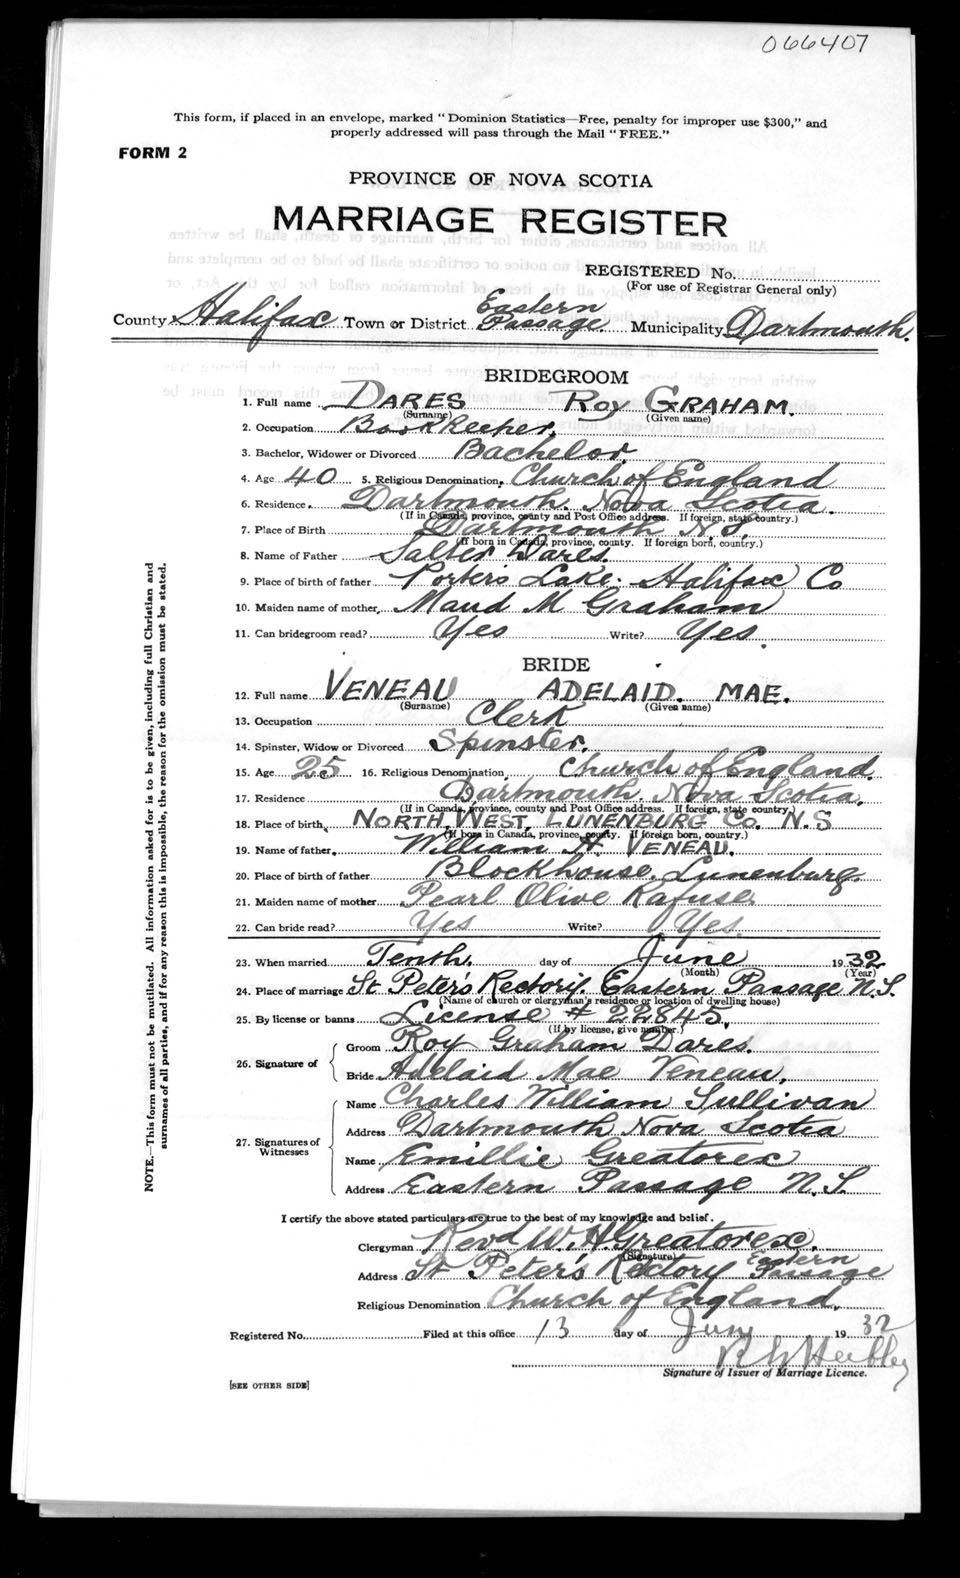 066407
This form, if placed in an envelope, marked "Dominion Statistics—Free, penalty for improper use $300," and
properly addressed will pass through the Mail "FREE."
FORM 2
PROVINCE OF NOVA SCOTIA
MARRIAGE REGISTER
REGISTERED No.
(For use of Registrar General only)
County Halifax Town or District Eastern Passage Municipality Dartmouth.
BRIDEGROOM
1. Full name DARES ROY GRAHAM.
(Surname) (Given name)
2. Occupation Bookkeeper.
3. Bachelor, Widower or Divorced Bachelor.
4. Age 40 5. Religious Denomination Church of England
6. Residence Dartmouth. Nova Scotia.
(If in Canada, province, county and Post Office address. If foreign, state country.)
7. Place of Birth Dartmouth N.S.
(If born in Canada, province, county. If foreign born, country.)
8. Name of Father Salter Dares.
9. Place of birth of father Porters Lake. Halifax Co
10. Maiden name of mother Maud M Graham
11. Can bridegroom read? Yes Write? Yes.
BRIDE
12. Full name VENEAU ADELAID. MAE.
(Surname) (Given name)
13. Occupation Clerk
14. Spinster, Widow or Divorced Spinster.
15. Age 25 16. Religious Denomination Church of England.
17. Residence Dartmouth Nova Scotia.
(If in Canada, province, county and Post Office address. If foreign, state country.)
18. Place of birth NORTH WEST, LUNENBURG Co. N.S
(If born in Canada, province, county. If foreign born, country.)
19. Name of father William H. VENEAU.
20. Place of birth of father Blockhouse, Lunenburg.
21. Maiden name of mother Pearl Olive Rafuse
22. Can bride read? Yes Write? Yes.
23. When married Tenth. day of June 1932
(Month) (Year)
24. Place of marriage St Peter's Rectory. Eastern Passage N.S.
(Name of church or clergyman's residence or location of dwelling house)
25. By license or banns License # 22845.
(If by license, give number.)
26. Signature of
Groom Roy Graham Dares.
Bride Adelaid Mae Veneau.
27. Signatures of Witnesses
Name Charles William Sullivan
Address Dartmouth Nova Scotia
Name Emillie Greatorex
Address Eastern Passage N.S.
I certify the above stated particulars are true to the best of my knowledge and belief.
Clergyman Revd W. H Greatorex.
(Signature)
Address St Peter's Rectory Eastern Passage
Religious Denomination Church of England.
Registered No. Filed at this office 13 day of June 19 32
Signature of Issuer of Marriage Licence.
[SEE OTHER SIDE]
NOTE.—This form must not be mutilated. All information asked for is to be given, including full Christian and
surnames of all parties, and if for any reason this is impossible, the reason for the omission must be stated.